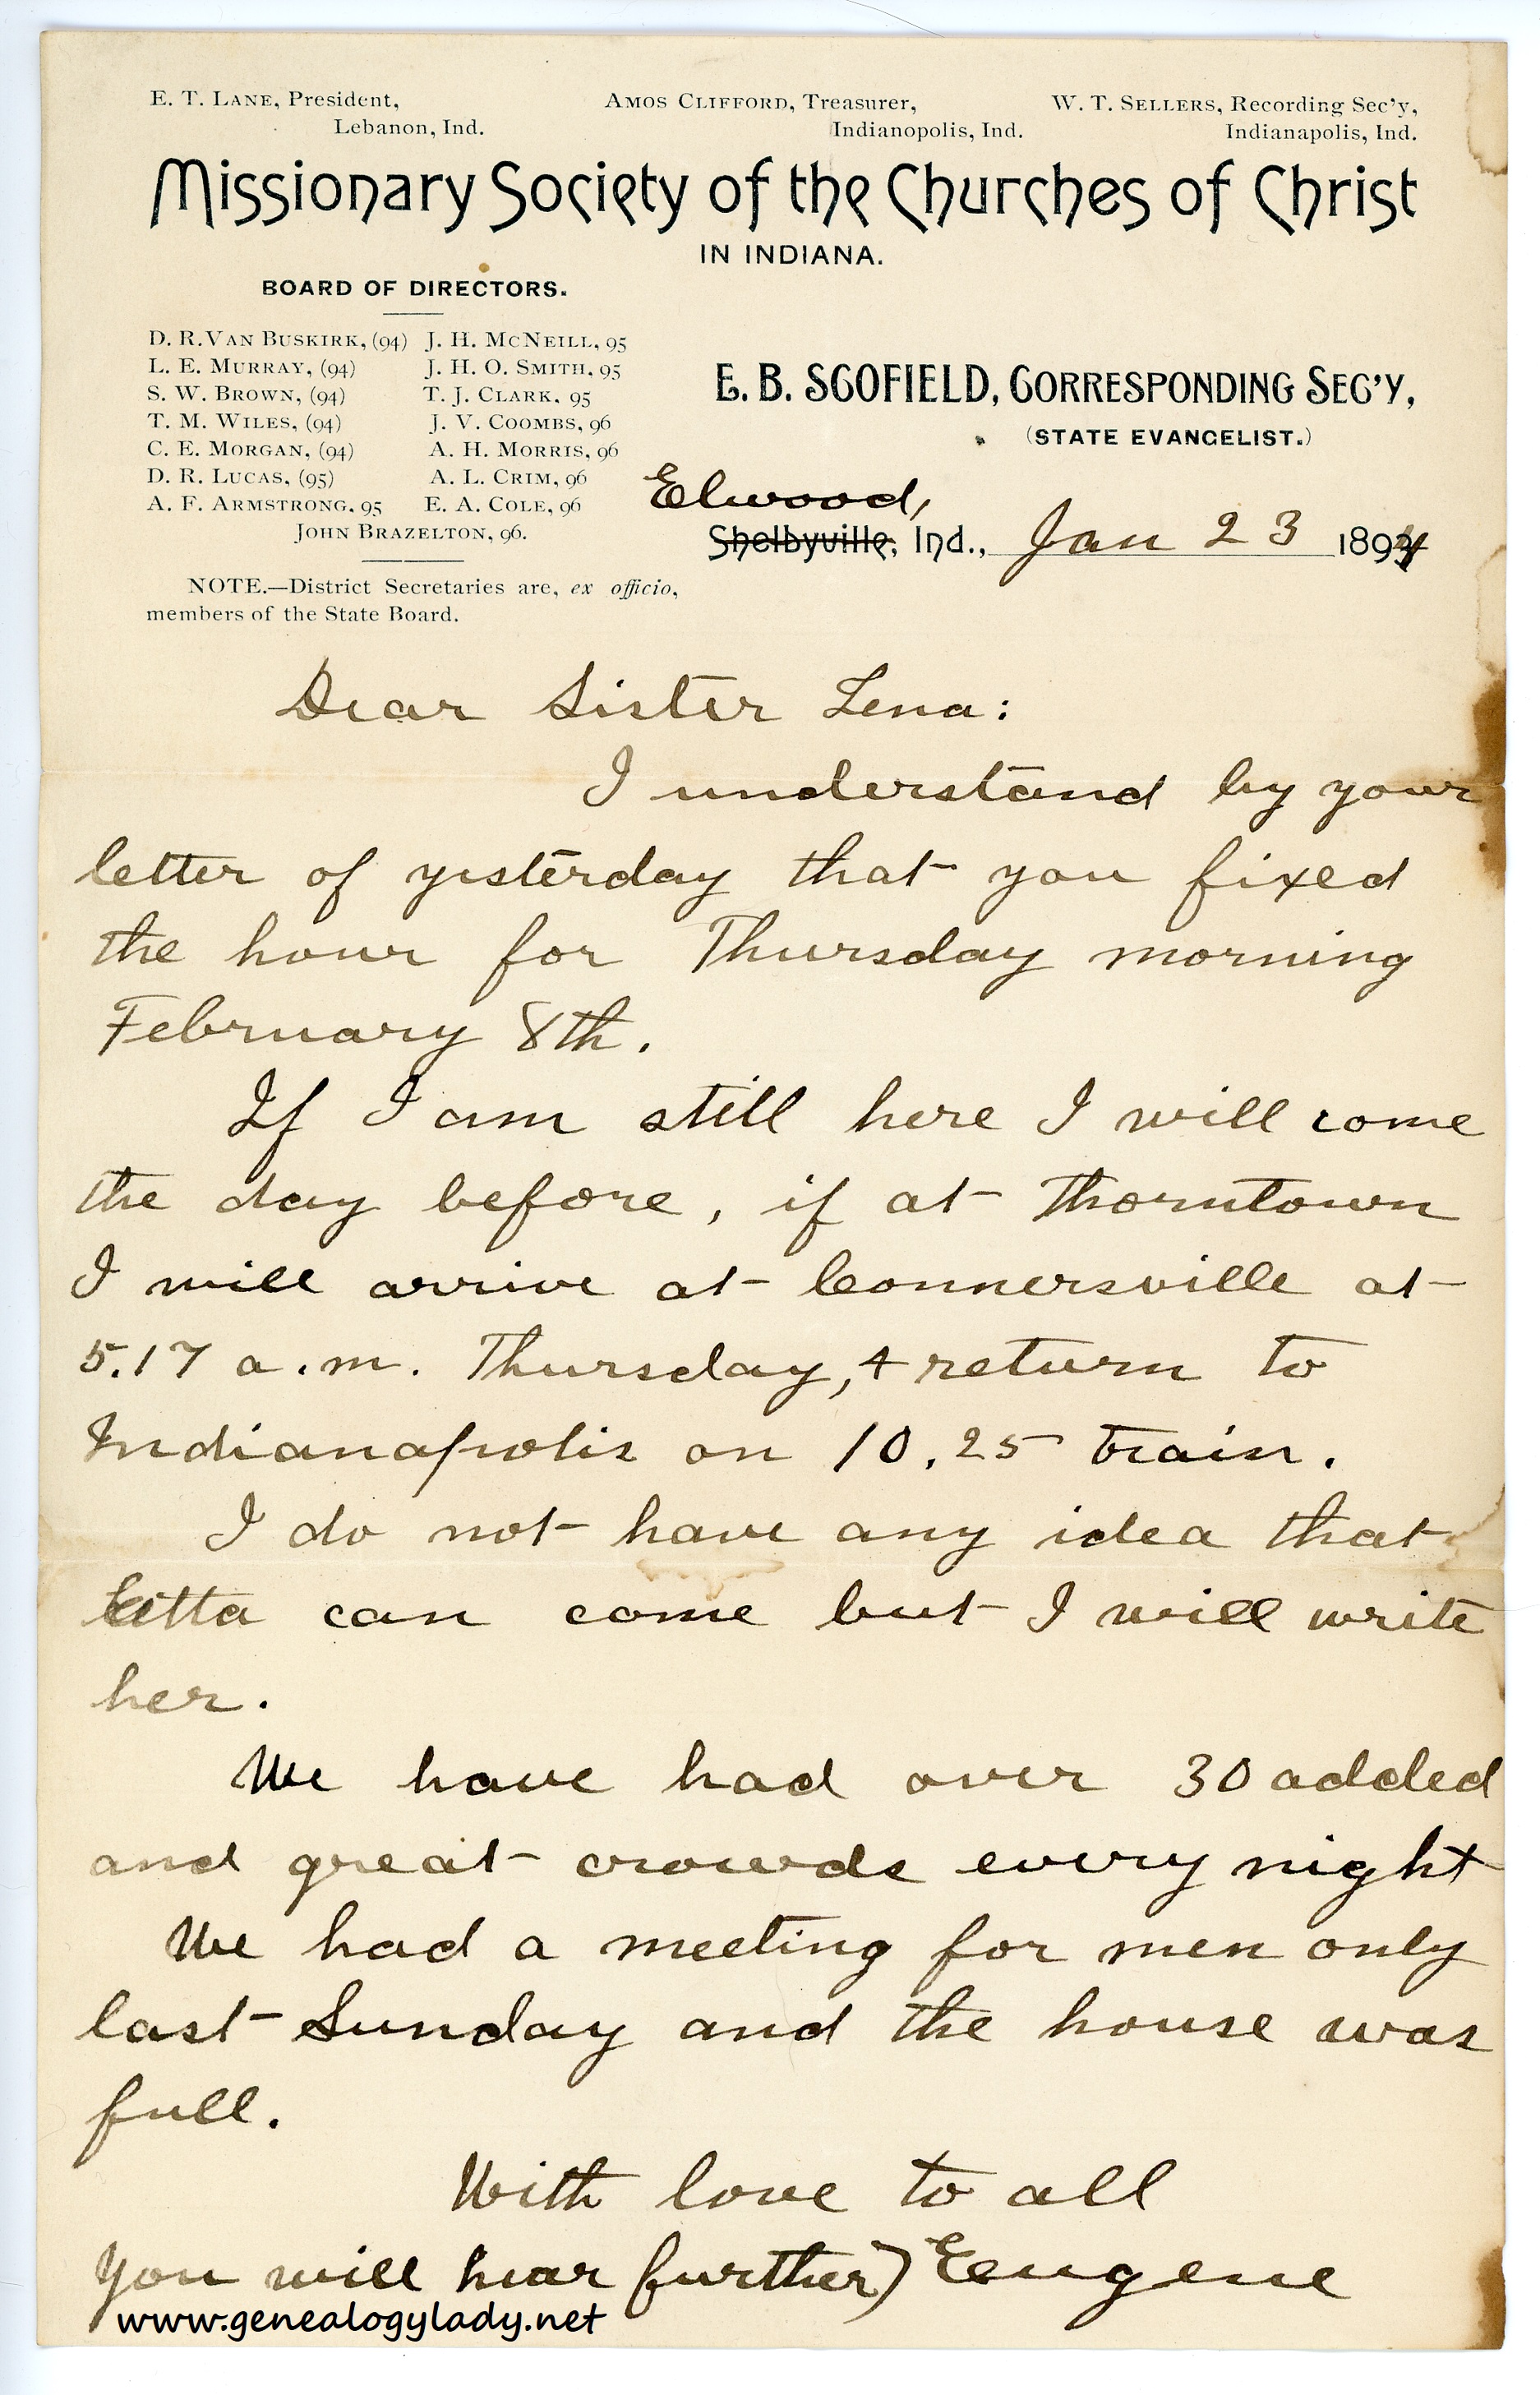 E. T. LANE, President,
Lebanon, Ind.
AMOS CLIFFORD, Treasurer,
Indianopolis, Ind.
W. T. SELLERS, Recording Sec'y,
Indianapolis, Ind.
Missionary Society of the Churches of Christ
IN INDIANA.
BOARD OF DIRECTORS.
D. R. VAN BUSKIRK, (94) J. H. MCNEILL, 95
L. E. MURRAY, (94) J. H. O. SMITH, 95
S. W. BROWN, (94) T. J. CLARK, 95
T. M. WILES, (94) J. V. COOMBS, 96
C. E. MORGAN, (94) A. H. MORRIS, 96
D. R. LUCAS, (95) A. L. CRIM, 96
A. F. ARMSTRONG, 95 E. A. COLE, 96
JOHN BRAZELTON, 96.
NOTE.—District Secretaries are, ex officio,
members of the State Board.
E. B. SCOFIELD, CORRESPONDING SEC'Y,
(STATE EVANGELIST.)
Elwood,
Shelbyville, Ind., Jan 23 1894
Dear Sister Lena:
I understand by your
letter of yesterday that you fixed
the hour for Thursday morning
February 8th.
If I am still here I will come
the day before, if at Thorntown
I will arrive at Connersville at
5.17 a.m. Thursday, + return to
Indianapolis on 10.25 train.
I do not have any idea that
Etta can come but I will write
her.
We have had over 30 added
and great crowds every night
We had a meeting for men only
last Sunday and the house was
full.
With love to all
You will hear further) Eugene
www.genealogylady.net